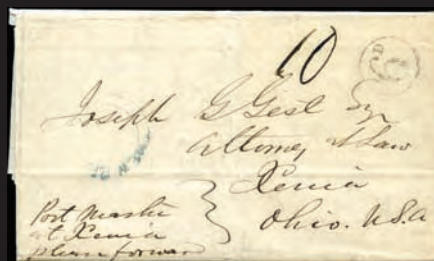 10
Joseph G Gest Esq
Attorney at Law
Xenia
Ohio. U.S.a
Post Master
at Xenia
please forward